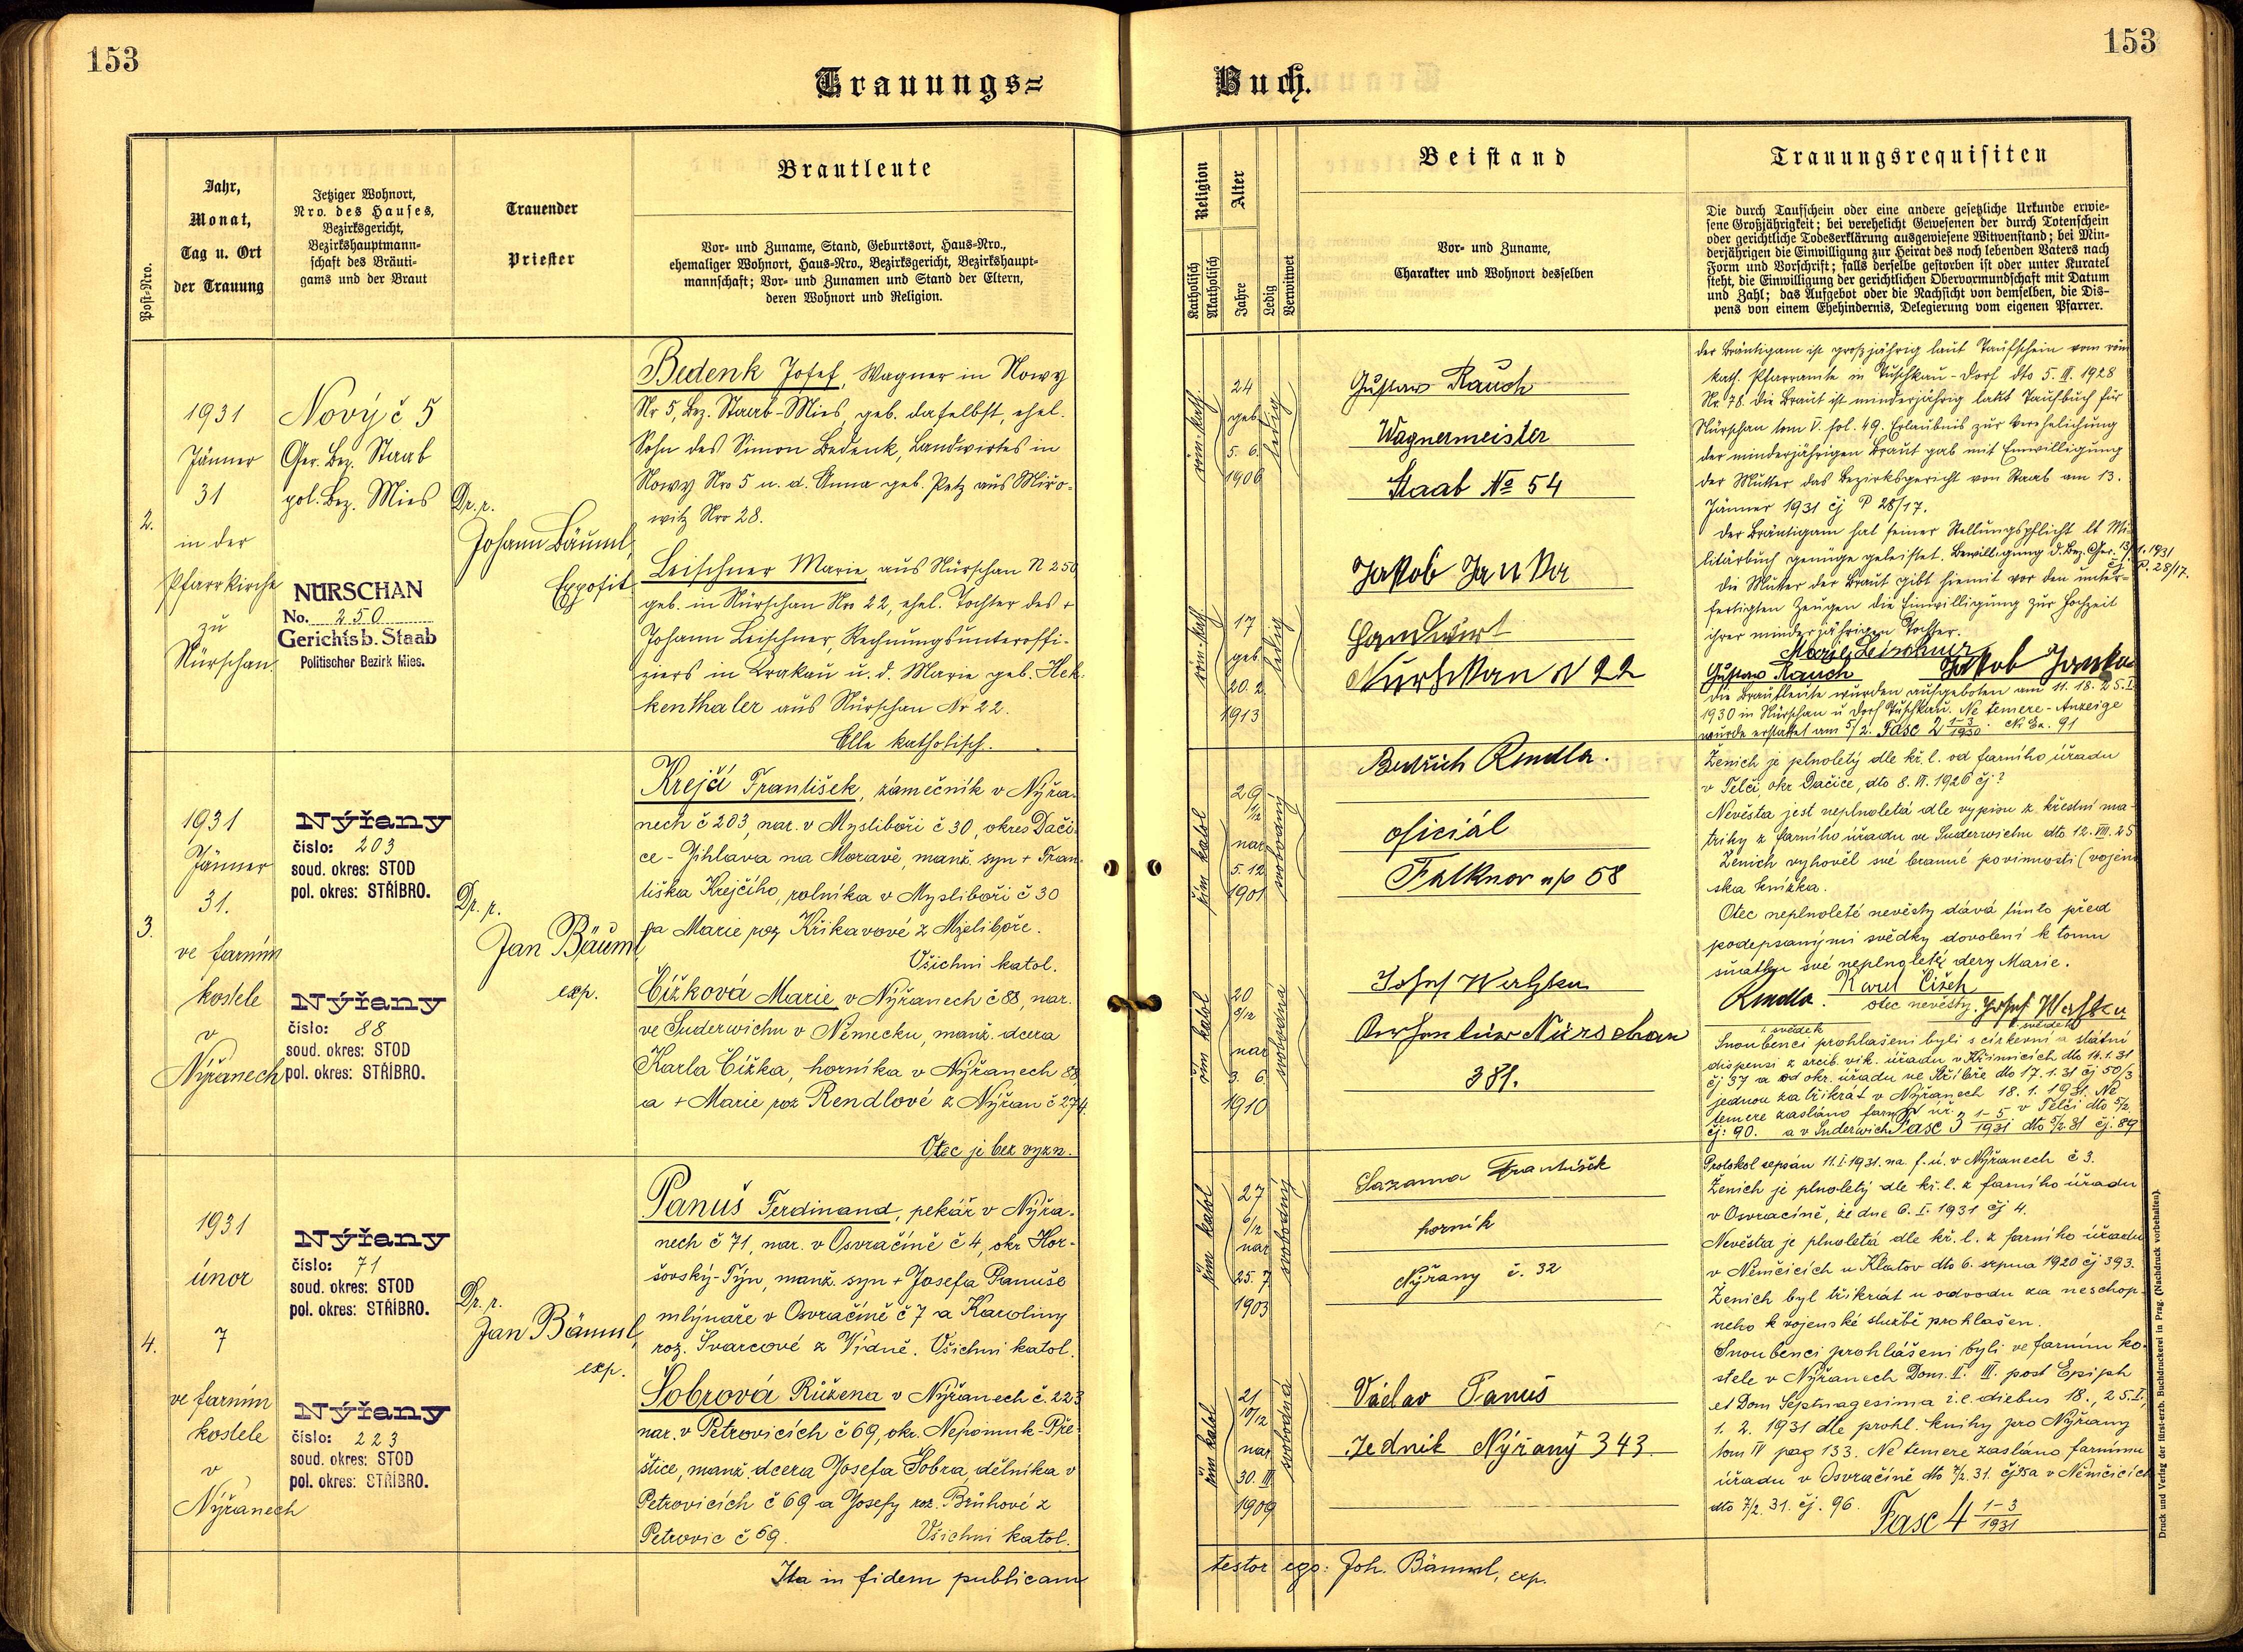 153
Trauungs=
Jahr,
Monat,
Tag u. Ort
der Trauung
Post-Nro.
Jetziger Wohnort,
Nro. des Hauses,
Bezirksgericht,
Bezirkshauptmann-
schaft des Bräuti-
gams und der Braut
Trauender
Priester
Brautleute
Vor- und Zuname, Stand, Geburtsort, Haus-Nro.,
ehemaliger Wohnort, Haus-Nro., Bezirksgericht, Bezirkshaupt-
mannschaft; Vor- und Zunamen und Stand der Eltern,
deren Wohnort und Religion.
2.
1931
Jänner
31
in der
Pfarrkirche
zu
Nürschan
Nový č 5
Ger. Bez. Staab
pol. Bez. Mies
NÜRSCHAN
No. 250
Gerichtsb. Staab
Politischer Bezirk Mies.
Dr. r.
Johann Bäuml,
Exposit
Bedenk Josef, Wagner in Nowy
Nr 5, Bez. Staab-Mies, geb. daselbst, ehel.
Sohn des Simon Bedenk, Landwirtes in
Nowy Nro 5 u. d. Anna geb. Petz aus Miro-
witz Nro 28.
Leischner Marie, aus Nürschan N 250
geb. in Nürschan Nro 22, ehel. Tochter des +
Johann Leischner, Rechnungsunteroffi-
ziers in Krakau u. d. Marie geb. Hek-
kenthaler aus Nürschan Nr 22.
Alle katholisch.
3.
1931
Jänner
31.
ve farním
kostele
v
Nýřanech
Nýřany
číslo: 203
soud. okres: STOD
pol. okres: STŘÍBRO.
Nýřany
číslo: 88
soud. okres: STOD
pol. okres: STŘÍBRO.
Dr. r.
Jan Bäuml
exp.
Krejčí František, zámečník v Nýřa-
nech č 203, nar. v Mysliboři č 30, okres Dači-
ce - Jihlava na Moravě, manž. syn + Fran-
tiška Krejčího, rolníka v Mysliboři č 30
a Marie roz Křikavové z Mysliboře.
Všichni katol.
Čížková Marie v Nýřanech č 88, nar.
ve Suderwichu v Německu, manž. dcera
Karla Čížka, horníka v Nýřanech 88
a + Marie roz Rendlové z Nýřan č 274
Otec je bez vyzn.
4.
1931
únor
7
ve farním
kostele
v
Nýřanech
Nýřany
číslo: 71
soud. okres: STOD
pol. okres: STŘÍBRO.
Nýřany
číslo: 223
soud. okres: STOD
pol. okres: STŘÍBRO.
Dr. r.
Jan Bäuml,
exp.
Panuš Ferdinand, pekář v Nýřa-
nech č 71, nar. v Osvračíně č 4, okr Hor-
šovský-Týn, manž. syn + Josefa Panuše
mlynáře v Osvračíně č 7 a Karoliny
roz. Švarcové z Vídně. Všichni katol.
Šobrová Růžena v Nýřanech č. 223
nar. v Petrovicích č 69, okr. Nepomuk-Pře-
štice, manž dcera Josefa Šobra, dělníka v
Petrovicích č 69 a Josefy roz. Brůhové z
Petrovic č 69. Všichni katol.
Ita in fidem publicam
153
Buch.
Religion
Katholisch
Akatholisch
Alter
Jahre
Ledig
Verwitwet
Beistand
Vor- und Zuname,
Charakter und Wohnort desselben
Trauungsrequisiten
Die durch Taufschein oder eine andere gesetzliche Urkunde erwie-
sene Großjährigkeit; bei verehelicht Gewesenen der durch Totenschein
oder gerichtliche Todeserklärung ausgewiesene Witwenstand; bei Min-
derjährigen die Einwilligung zur Heirat des noch lebenden Vaters nach
Form und Vorschrift; falls derselbe gestorben ist oder unter Kuratel
steht, die Einwilligung der gerichtlichen Obervormundschaft mit Datum
und Zahl; das Aufgebot oder die Nachsicht von demselben, die Dis-
pens von einem Ehehindernis, Delegierung vom eigenen Pfarrer.
röm. kath.
24
geb
5. 6.
1906
ledig
Gustav Rauch
Wagnermeister
Staab № 54
röm. kath
17
geb
20. 2.
1913
ledig
Jakob Janka
Landwirt
Nürschan N 22
der Bräutigam ist großjährig laut Taufschein vom röm
kath. Pfarramte in Tuschkau-Dorf dto 5. III. 1928
Nr. 78. Die Braut ist minderjährig laut Taufbuch für
Nürschan tom V. fol. 49. Erlaubnis zur Verehelichung
der minderjährigen Braut gab mit Einwilligung
der Mutter das Bezirksgericht von Staab am 13.
Jänner 1931 čj P 28/17.
Der Bräutigam hat seiner Stellungspflicht lt Mi-
litärbuch genüge geleistet. Bewilligung d. Bez. Ger. 13/1. 1931
čj. P. 28/17.
Die Mutter der Braut gibt hiemit vor den unter-
fertigten Zeugen die Einwilligung zur Hochzeit
ihrer minderjährigen Tochter.
Marie Leischner
Gustav Rauch Jakob Janka
Die Brautleute wurden aufgeboten am 11. 18. 25. I.
1930 in Nürschan u Dorf Tuschkau. Ne temere-Anzeige
wurde erstattet am 5/2. Fasc 2 1-3/1930. N. Ex. 91
řím katol
29
1/12
nar
5. 12
1901
svobodný
Bedřich Rendla.
oficiál
Falknov n/o 58
řím katol
20
nar
3. 6.
1910
svobodná
Josef Watzka
Nürschan
381.
Ženich je plnoletý dle kř. l. od farního úřadu
v Telči, okr Dačice, dto 8. VI. 1926 čj?
Nevěsta jest neplnoletá dle výpisu z křestní ma-
triky z farního úřadu ve Suderwichu dto 12. VIII. 25
Ženich vyhověl své branné povinnosti (vojen-
ská knížka.
Otec neplnoleté nevěsty dává tímto před
podepsanými svědky dovolení k tomu
sňatku své neplnoleté dcery Marie.
Karel Čížek
Rendla. otec nevěsty. Josef Watzka
I. svědek II. svědek
Snoubenci prohlášeni byli s církevní a státní
dispensí z arcib. vik. úřadu v Křimicích dto 14. 1. 31
čj 37 a od okr. úřadu ve Stříbře dto 17. 1. 31 čj 50/3
jednou za třikrát v Nýřanech 18. 1. 1931. Ne
temere zasláno farn. úř. v Telči dto 5/2.
čj: 90. a v Suderwich Fasc 3 1-5/1931 dto 5/2. 31 čj. 89
řím katol
27
6/12
nar
25. 7
1903
svobodný
Sazama František
horník
Nýřany č. 32
řím katol
21
10/12
nar
30. III
1909
svobodná
Václav Panuš
Nýřaný 343
Protokol sepsán 11. I. 1931. na f. ú. v Nýřanech č 3.
Ženich je plnoletý dle kř. l. z farního úřadu
v Osvračíně, ze dne 6. I. 1931 čj 4.
Nevěsta je plnoletá dle kř. l. z farního úřadu
v Němčicích u Klatov dto 6. srpna 1920 čj 393.
Ženich byl třikrát u odvodu za neschop-
ného k vojenské službě prohlášen.
Snoubenci prohlášeni byli ve farním ko-
stele v Nýřanech Dom. II. III. post Epiph
et Dom Septuagesima i. e. diebus 18., 25. I.,
1. 2. 1931 dle prohl. knihy pro Nýřany
tom IV pag 133. Ne temere zasláno farnímu
úřadu v Osvračíně dto 7/2. 31. čj 95 a v Němčicích
dto 7/2. 31. čj. 96. Fasc 4 1-3/1931
testor ego: Joh. Bäuml, exp.
Druck und Verlag der fürst-erzb. Buchdruckerei in Prag. (Nachdruck vorbehalten).